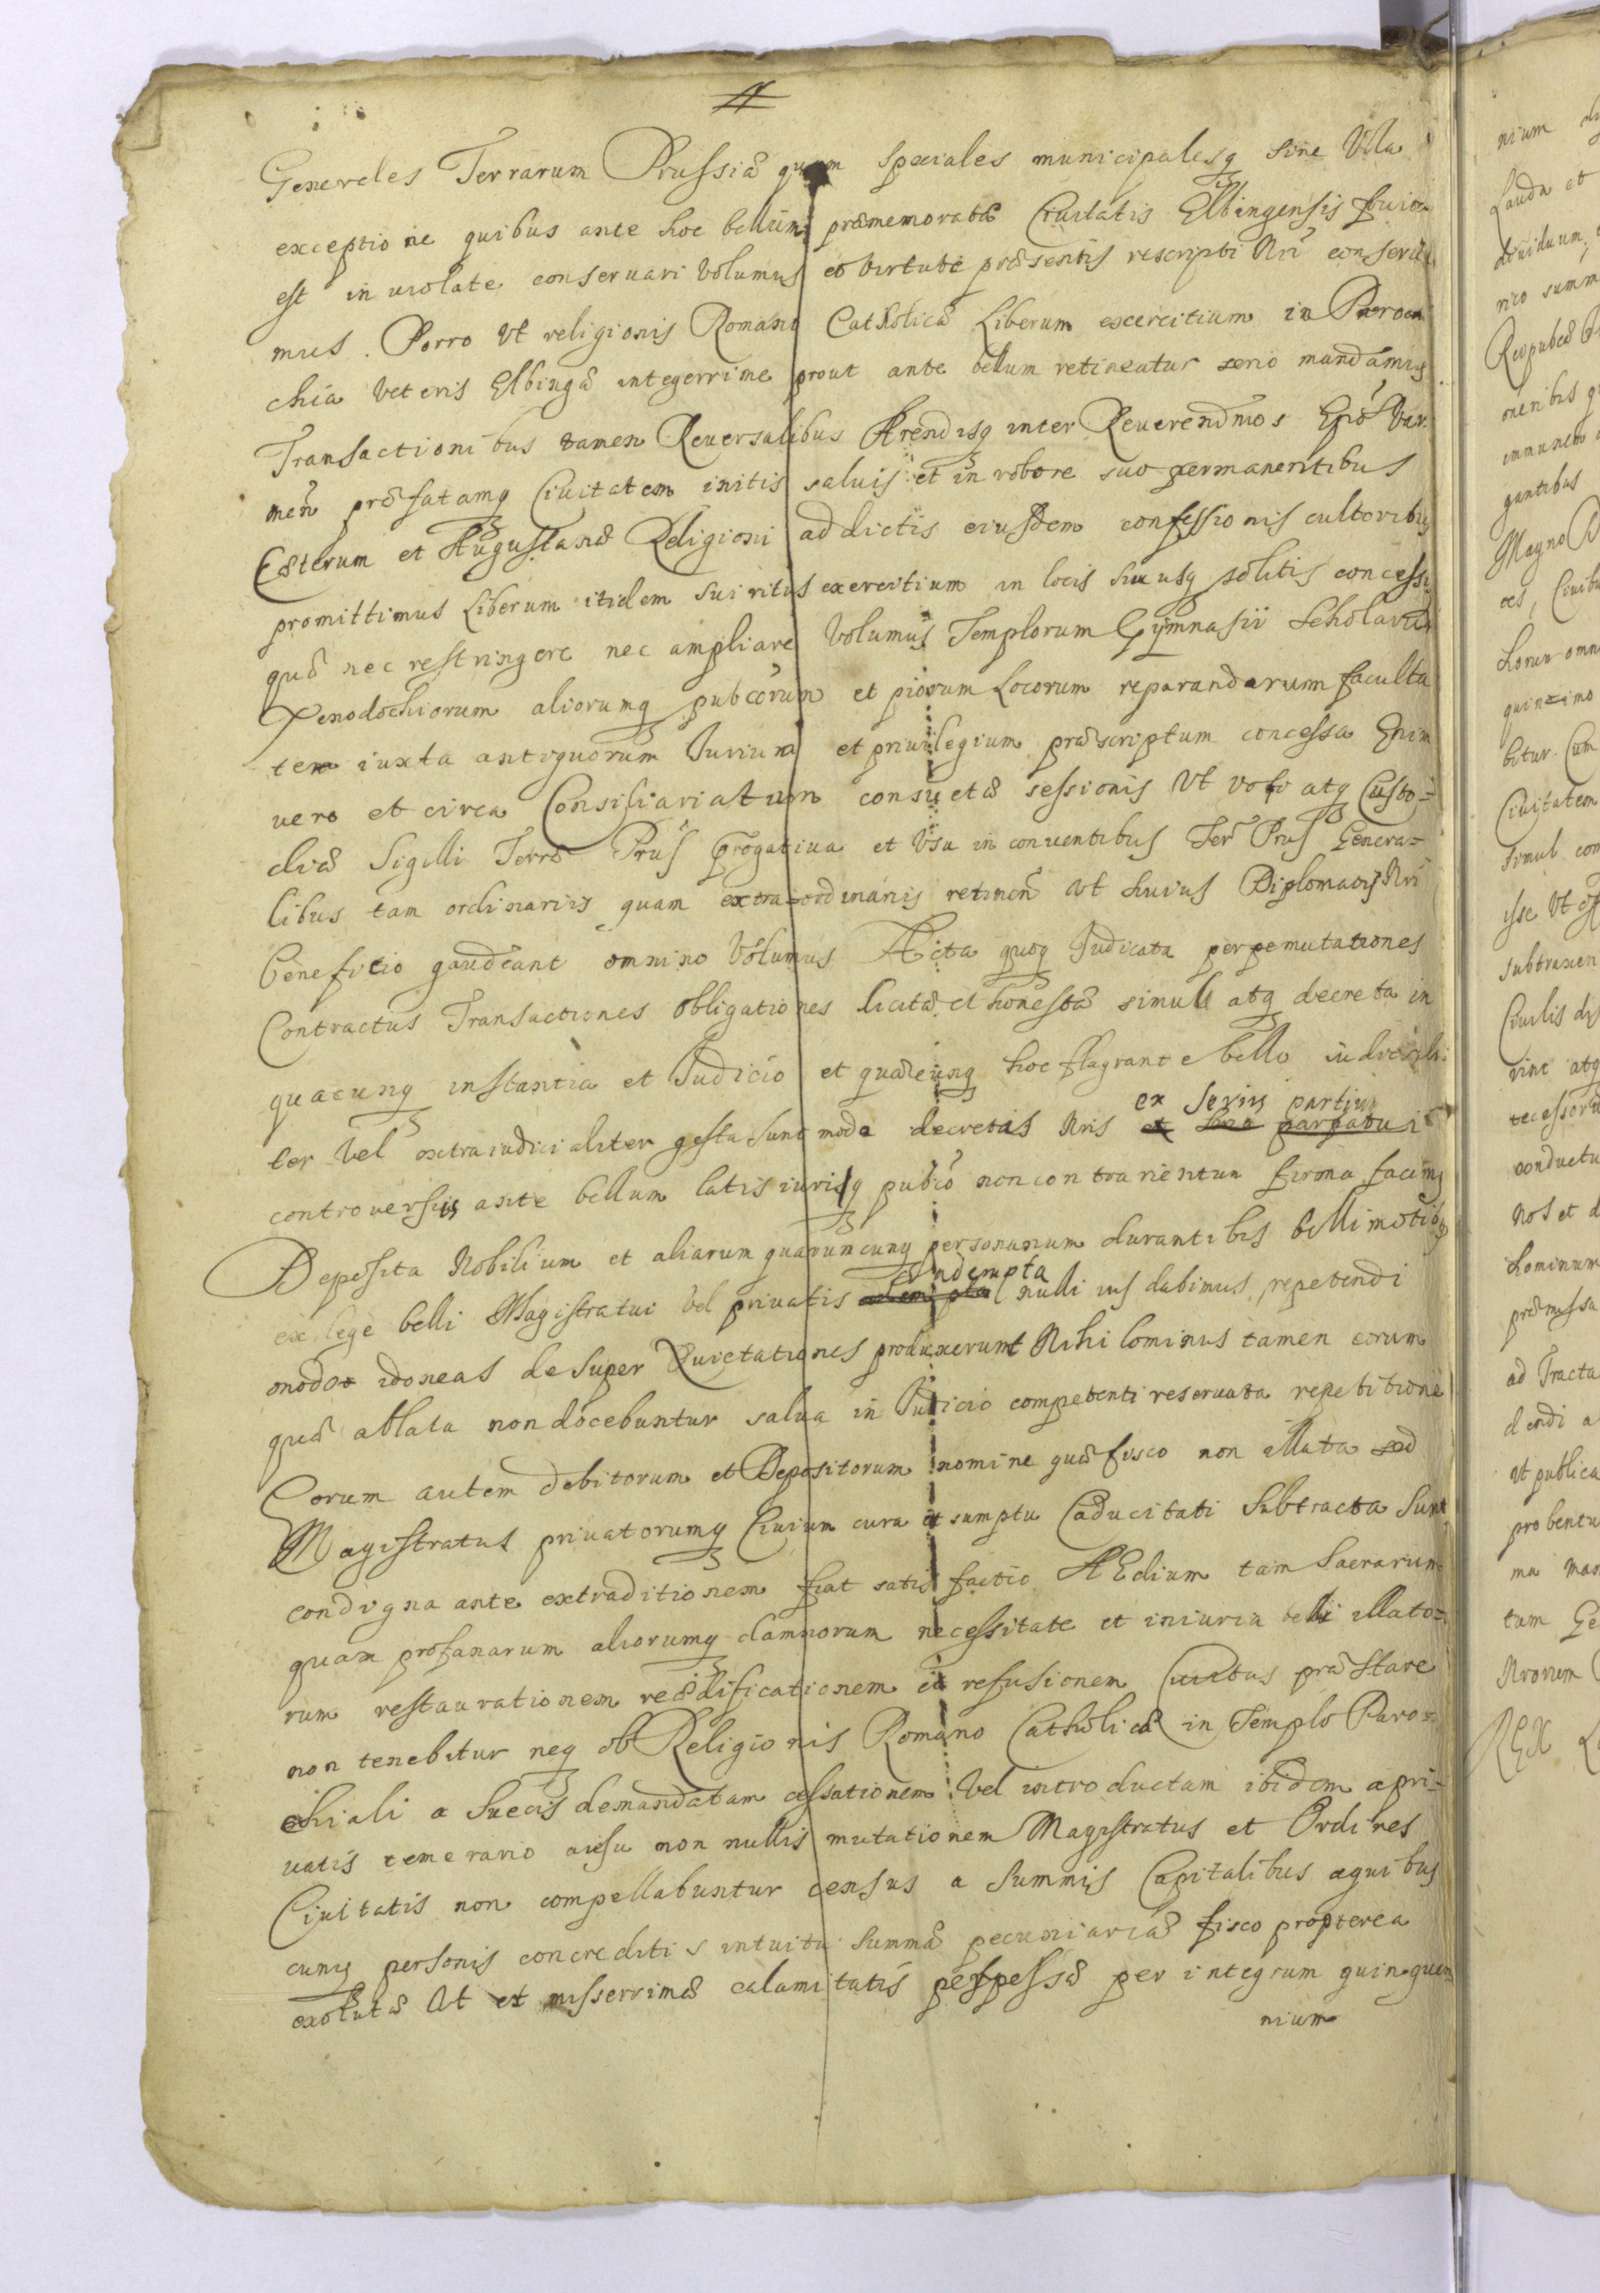 Generales Terrarum Prussiæ quam speciales municipalesq sine Vlla
exceptione quibus ante hoc bellum præmemorata Ciuitatis Elbingensis fruita
est inuiolate conseruari Volumus et virtute præsentis rescripti Nri conserua
mus. Porro Vt religionis Romano Catholicæ Liberum exercitium in Paroe
chia Veteris Elbingæ integerrime prout ante bellum retineatur serio mandamus
Transactionibus tamen Reuersalibus Arendisq inter Reuerendmos Epōs Var
men præfatamq Ciuitatem initis saluis et in robore suo permanentibus
Cæterum et Augustanæ Religioni addictis eiusdem confessionis cultoribus
promittimus Liberum itidem sui ritus exercitium in locis hucusq solitis concessis
quæ nec restringere nec ampliare Volumus Templorum Gymnasii Scholarum
Xenodochiorum aliorumq pubcorum et piorum Locorum reparandarum faculta
tem iuxta antiquorum Iurium et priuilegium præscriptum concessa Enim
uero et circa Consiliariatum consuetæ sessionis Vt voti atq Custo=
diæ Sigilli Terræ Prus progatiua et Vsu in conuentibus Ter Prus Genera=
libus tam ordinariis quam extraordinariis retinen Vt huius Diplomatis Nri
Beneficio gaudeant omnino Volumus Acta quoq Iudicata perpemutationes
Contractus Transactiones obligationes licitæ et honestæ simul atq decreta in
quacunq instantia et Iudicio et quæcunq hoc flagrante bello iudiciali
ter Vel extraiudicialiter gesta sunt modo decretis Nris et
ex seriis partium
controuersiis ante bellum latis iurisq pubco non contrarientur firma facimus
Deposita Nobilium et aliarum quaruncunq personarum durantibus belli motibus
ex lege belli Magistratui Vel priuatis nulli ius dabimus repetendi
modo idoneas desuper Quietationes produxerunt Nihilominus tamen eorum
quæ ablata non docebuntur salua in Iudicio competenti reseruata repetitione
Eorum autem debitorum et Depositorum nomine quæ fisco non illata sed
Magistratus priuatorumq Ciuium cura et sumptu Caducitati subtracta sunt
condigna ante extraditionem fiat satisfactio AEdium tam sacrarum
quam profanarum aliorumq damnorum necessitate et iniuria belli illato=
rum restaurationem reædificationem et refusionem Ciuitas præstare
non tenebitur neq ob Religionis Romano Catholicæ in Templo Paro=
chiali a Suecis demandatam cessationem Vel introductam ibidem a pri=
uatis temerario ausu non nullis mutationem Magistratus et Ordines
Ciuitatis non compellabuntur census a Summis Capitalibus aquibus
cunq personis concreditis intuitu summæ pecuniariæ fisco propterea
exolutæ Vt et misserrimæ calamitatis perpessæ per integrum quinquen
nium